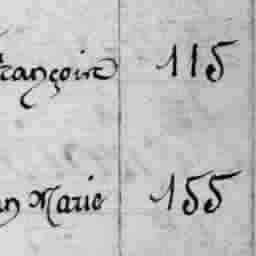 françoise 115
an Marie 155